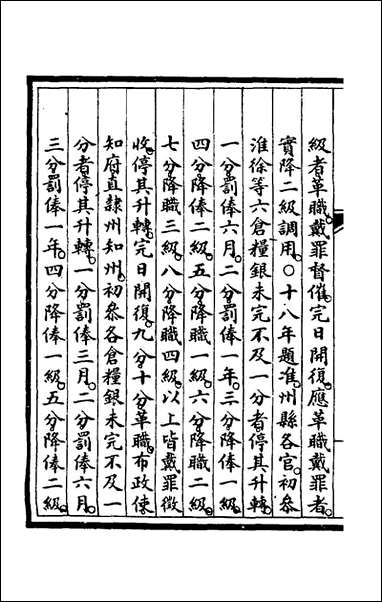 級者革職。戴罪督催。完日開復。應革職戴罪者。
實降二級調用。○十八年題准。州縣各官。初參
淮徐等六倉糧銀未完不及一分者停其升轉。
一分罰俸六月。二分罰俸一年。三分降俸一級。
四分降俸二級。五分降職一級。六分降職二級。
七分降職三級。八分降職四級。以上皆戴罪徵
收。停其升轉。完日開復。九分十分革職。布政使
知府直隸州知州。初參各倉糧銀未完不及一
分者。停其升轉。一分罰俸三月。二分罰俸六月。
三分罰俸一年。四分降俸一級。五分降俸二級。